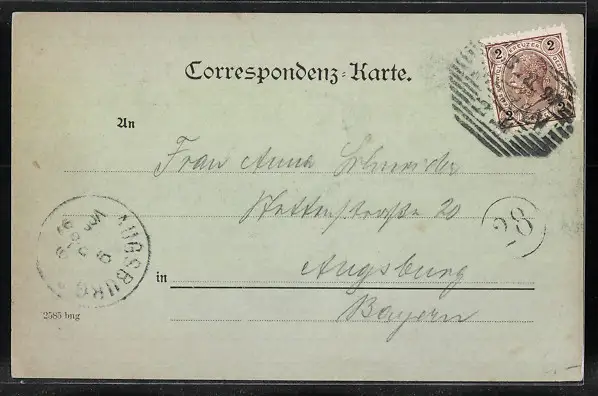 Correspondenz-Karte.
2 KREUZER 2
2 2
An
Frau Anna Schneider
Stettenstraße 20
28
AUGSBURG
in Augsburg
Bayern
2585 bng